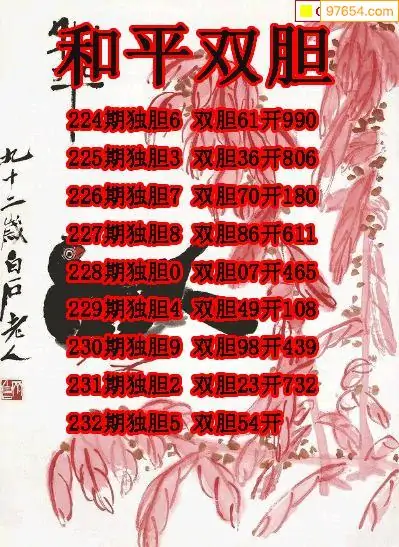 97654.com
和平双胆
224期独胆6 双胆61开990
225期独胆3 双胆36开806
226期独胆7 双胆70开180
227期独胆8 双胆86开611
228期独胆0 双胆07开465
229期独胆4 双胆49开108
230期独胆9 双胆98开439
231期独胆2 双胆23开732
232期独胆5 双胆54开
九十二岁白石老人